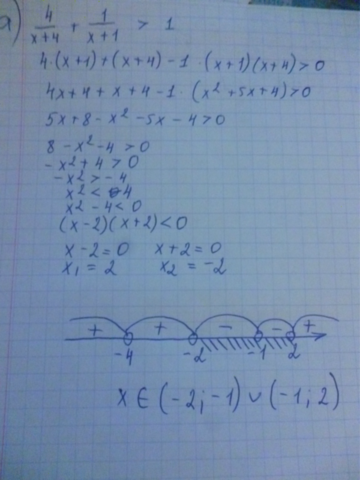 а) 4/(x+4) + 1/(x+1) > 1
4·(x+1)+(x+4)-1·(x+1)(x+4)>0
4x+4+x+4-1·(x²+5x+4)>0
5x+8-x²-5x-4>0
8-x²-4>0
-x²+4>0
-x²>-4
x²<4
x²-4<0
(x-2)(x+2)<0
x-2=0 x+2=0
x₁=2 x₂=-2
+ + - - +
-4 -2 -1 2
x∈(-2;-1)∪(-1;2)